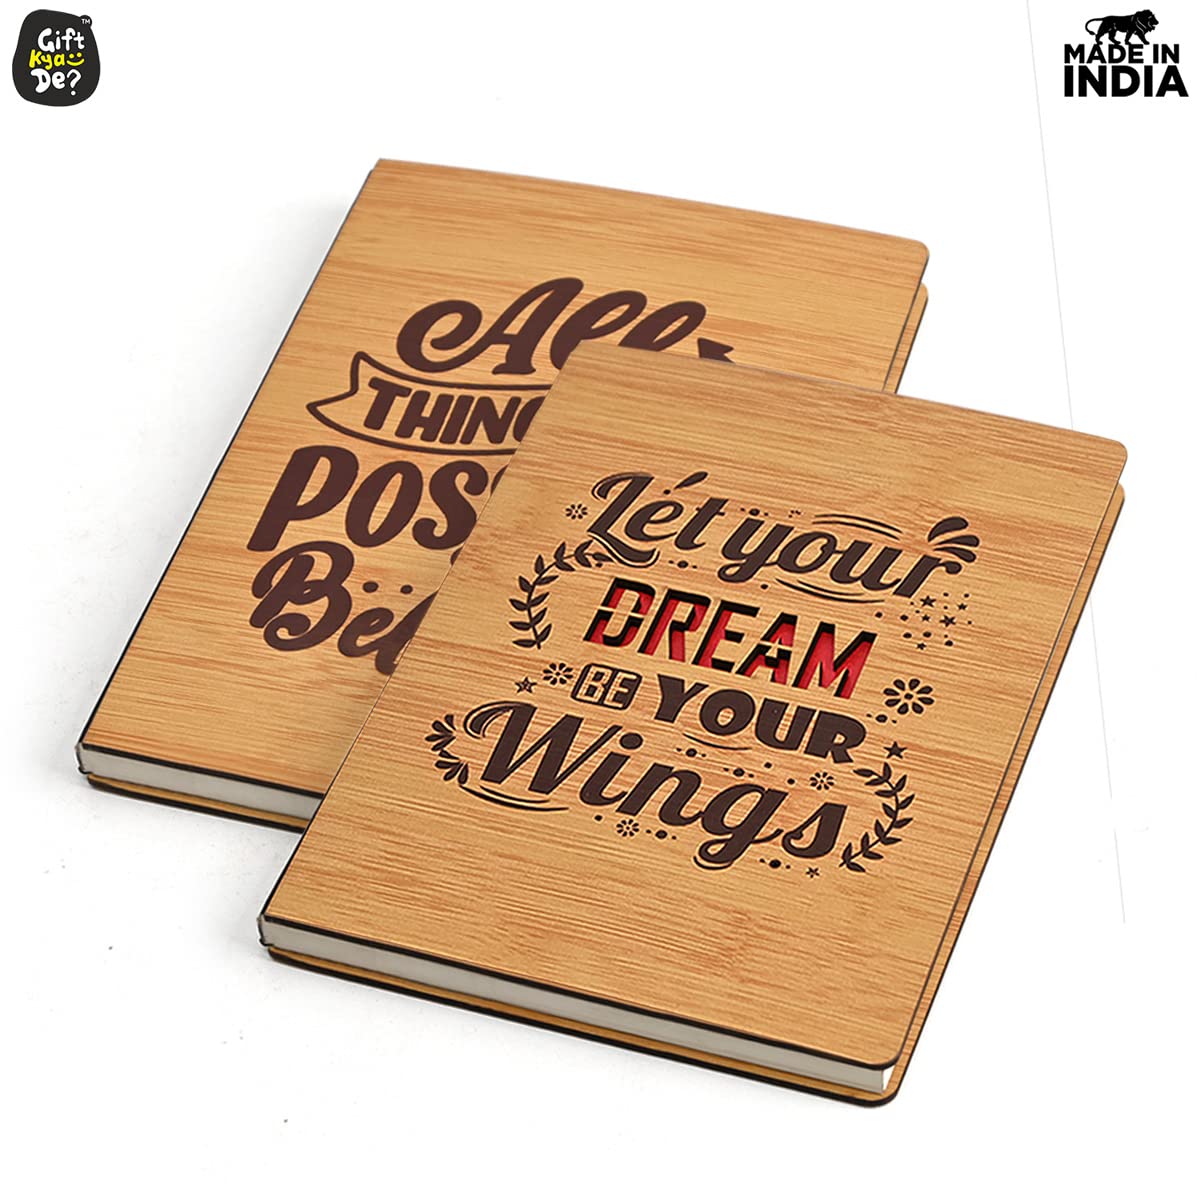 Gift
Kya
De?
TM
MADE IN
INDIA
All
THING
POSS
Bel
Let your
DREAM
BE YOUR
Wings